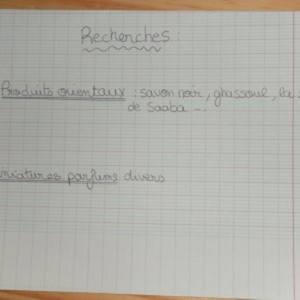 Recherches :
Produits orientaux : savon noir, ghassoul, la
de Saaba ...
miniatures parfums divers